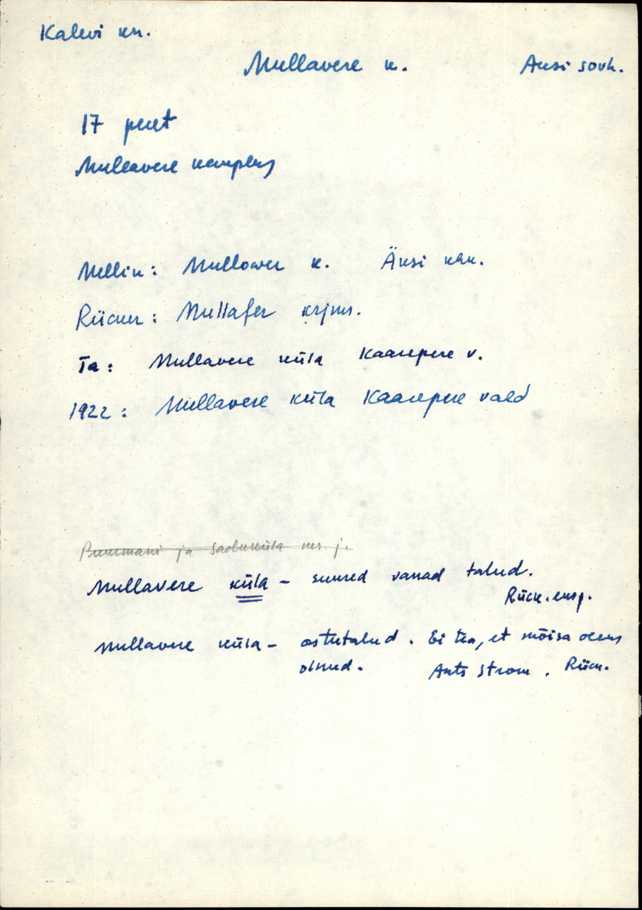 Kalevi kn.
Mullavere k. Äksi sovh.
17 peret
Mullavere kauplus
Mellin: Mullower k. Äksi khk.
Rücker: Mullafer krjms.
Ta: Mullavere küla Kaarepere v.
1922: Mullavere küla Kaarepere vald
ja
Mullavere küla – suured vanad talud.
Rück. eksp.
Mullavere küla – ostutalud. Ei tea, et mõisa oleks
olnud. Ants Strom. Rück.